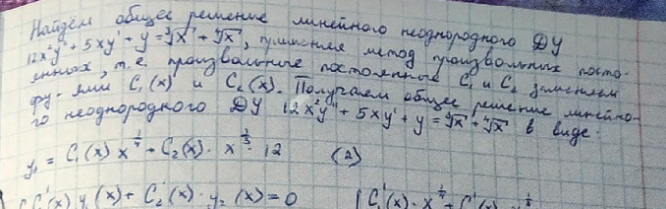 Найдём общее решение линейного неоднородного ДУ
12x²y'' + 5xy' + y = ∜x + ∜x, применяя метод произвольных посто-
янных, т.е. произвольные постоянные C₁ и C₂ заменяем
фу-ями C₁(x) и C₂(x). Получаем общее решение линейно-
го неоднородного ДУ 12x²y'' + 5xy' + y = ∜x + ∜x в виде:
y₁ = C₁(x) x^{1/4} + C₂(x) · x^{1/3} · 12 (2)
C₁'(x) y₁(x) + C₂'(x) · y₂(x) = 0